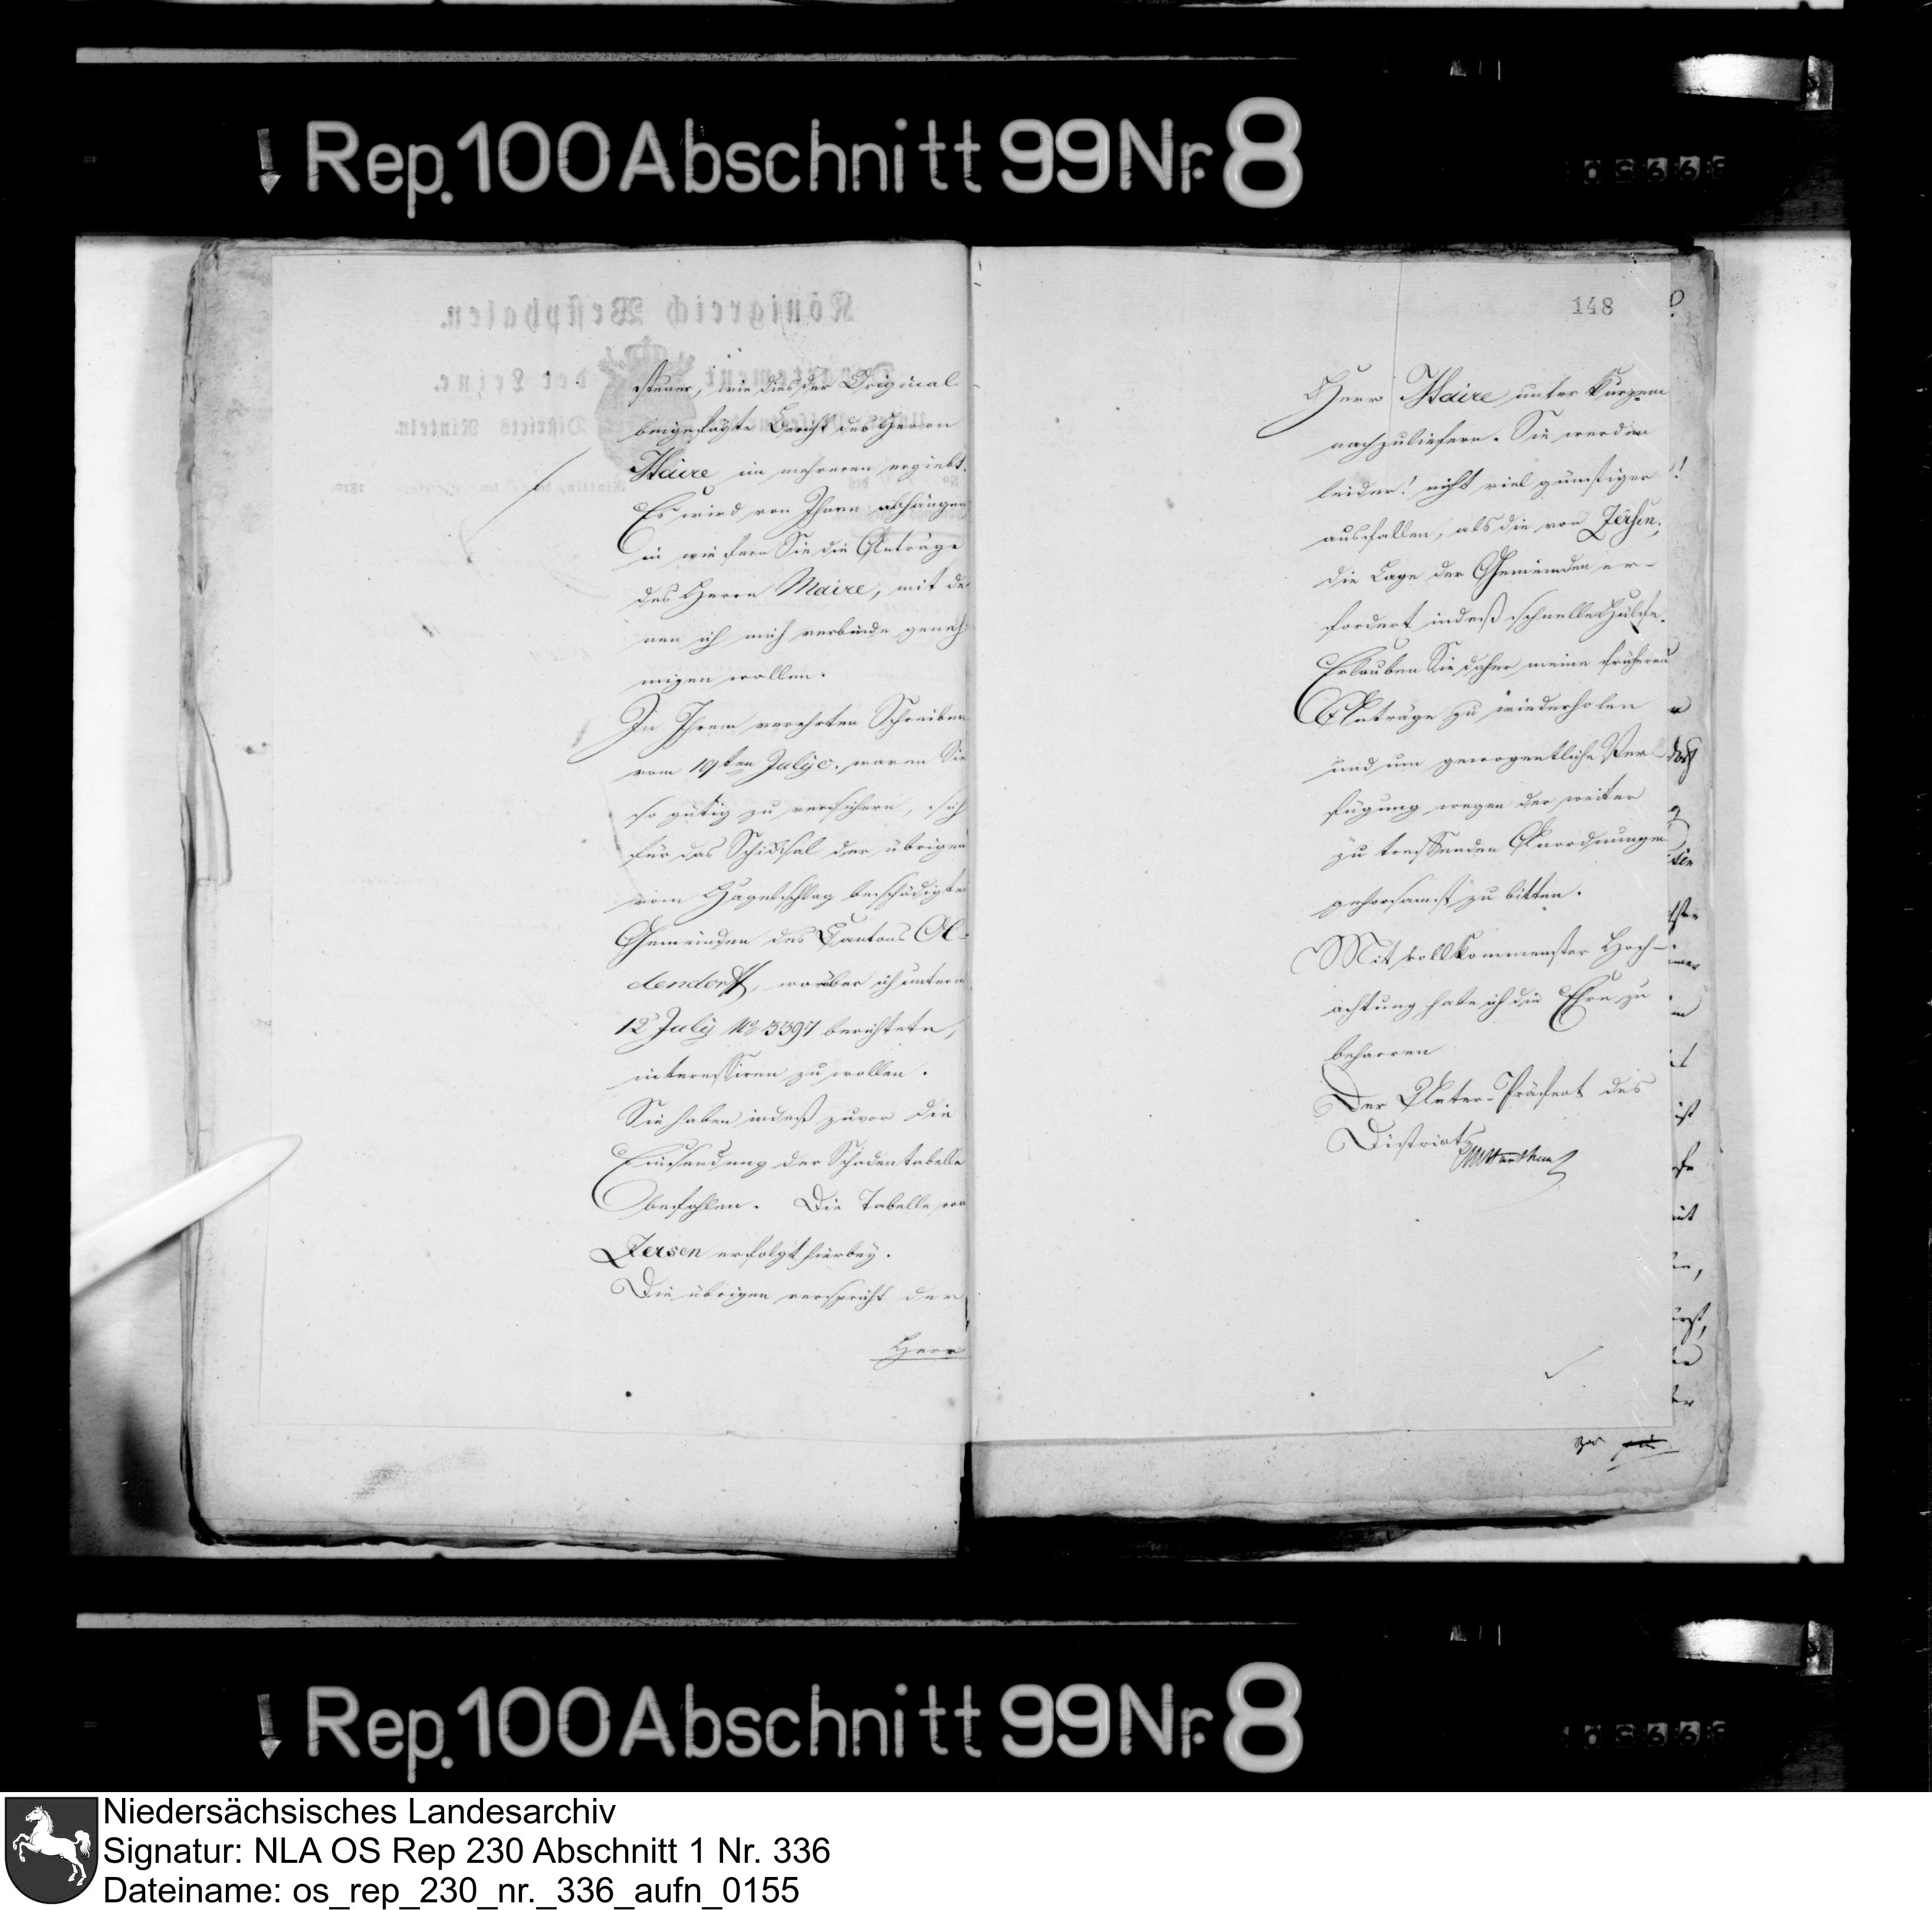 Rep. 100 Abschnitt 99 Nr. 8
steuer, wie dies der Original
beigefügte Bericht des Herrn
Maire im mehreren ergiebt.
Es wird von Ihnen abhängen
in wie fern Sie die Anträge
des Herrn Maire, mit de
nen ich mich verbinde geneh
migen wollen.
In Ihrem verehrten Schreiben
vom 19ten July c. waren Sie
so gütig zu versichern, sich
für das Schicksal der übrigen
vom Hagelschlag beschädigten
Gemeinden des Cantons Ol-
dendorff, worüber ich unterm
12 July No 3397 berichtete,
interessiren zu wollen.
Sie haben indeß zuvor die
Einsendung der Schadentabelle
befohlen. Die Tabelle von
Zersen erfolgt hierbey.
Die übrigen verspricht der
Herr
148
Herr Maire unter Kurzem
nachzuliefern. Sie werden
leider! nicht viel günstiger
ausfallen, als die von Zersen;
die Lage der Gemeinden er-
fordert indeß schnelle Hülfe.
Erlauben Sie daher meine früheren
Anträge zu wiederholen
und um gewogentliche Ver
fügung wegen der weiter
zu treffenden Anordnungen
gehorsamst zu bitten.
Mit vollkommenster Hoch-
achtung habe ich die Ehre zu
beharren
Der Unter-Präfect des
Districts
Rep. 100 Abschnitt 99 Nr. 8
Niedersächsisches Landesarchiv
Signatur: NLA OS Rep 230 Abschnitt 1 Nr. 336
Dateiname: os_rep_230_nr._336_aufn_0155